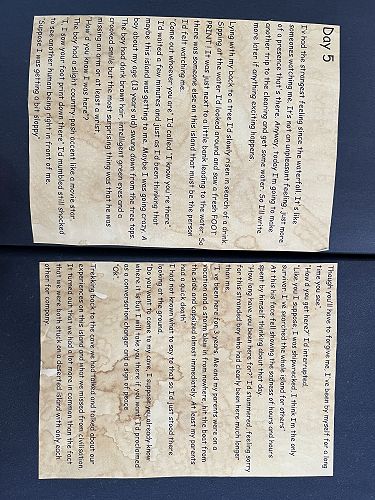 Day 5
I'v had the strangest feeling since the waterfall. It's like
someones watching me. It's not an unpleasant feeling, just more
of a presence that's there. Anyway, today I'm going to make
another trip to the clearing and get some water. So I'll write
more later if anything exciting happens.
Lying with my back to a tree I'd slowly risen in search of a drink.
Sipping at the water I'd looked around and saw a fresh FOOT
PRINT! It was just next to a little bank leading to the water. So
there was someone else on this island that must be the person
I'd felt watching me.
"Come out whoever you are." I'd called. "I know you're there"
I'd waited a few minutes and just as I'd been thinking that
maybe this island was getting to me. Maybe I was going crazy. A
boy about my age (13 years old) swung down from the tree tops.
The boy had dark brown hair, intelligent green eyes and a
crooked smile but the most surprising thing was that he was
missing a hand or at least a wrist.
"How'd you know I was here?"
The boy had a slight country-posh accent like a movie star.
"I, I saw your foot print down there" I'd mumbled still shocked
to see another human being right in front of me.
"Suppose I was getting a bit sloppy."
Though you'll have to forgive me. I've been by myself for a long
time you see."
"How'd you get here?" I'd interrupted.
"Like you I suppose. I was shipwrecked. I think I'm the only
survivor. I've searched the whole island for others"
At this his face fell showing the sadness of hours and hours
spent by himself thinking about that day.
"How long have you been here for?" I'd stammered, feeling sorry
for this stranded boy who had clearly been here much longer
than me.
"I've been here for 3 years. Me and my parents were on a
vacation and a storm blew in from nowhere, hit the boat from
the side and capsized almost immediately. At least my parents
had a quick death"
I had not known what to say to that so I'd just stood there
looking at the ground.
"Do you want to come to my cave, I suppose you already know
where it is but I will take you there if you want" I'd proclaimed
as a conversation changer and a sign of peace
"OK"
Trekking back to the cave we had talked and talked about our
experiences on this island and what we missed from civilisation.
It turned out that we had more in common than the fact
that we were both stuck on a deserted island with only each
other for company.